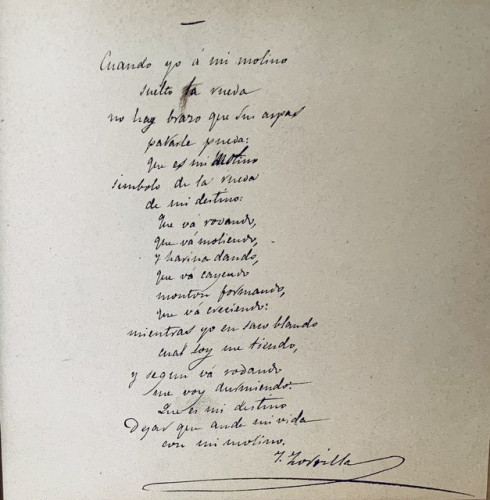 Cuando yo á mi molino
suelto la rueda
no hay brazo que sus aspas
pararle pueda:
que es mi molino
simbolo de la rueda
de mi destino:
Que vá rodando,
que vá moliendo,
y harina dando,
que vá cayendo
monton formando,
que vá creciendo:
mientras yo en saco blando
cual soy me tiendo,
y segun vá rodando
me voy durmiendo:
Que es mi destino
Dejar que ande mi vida
con mi molino.
J. Zorrilla